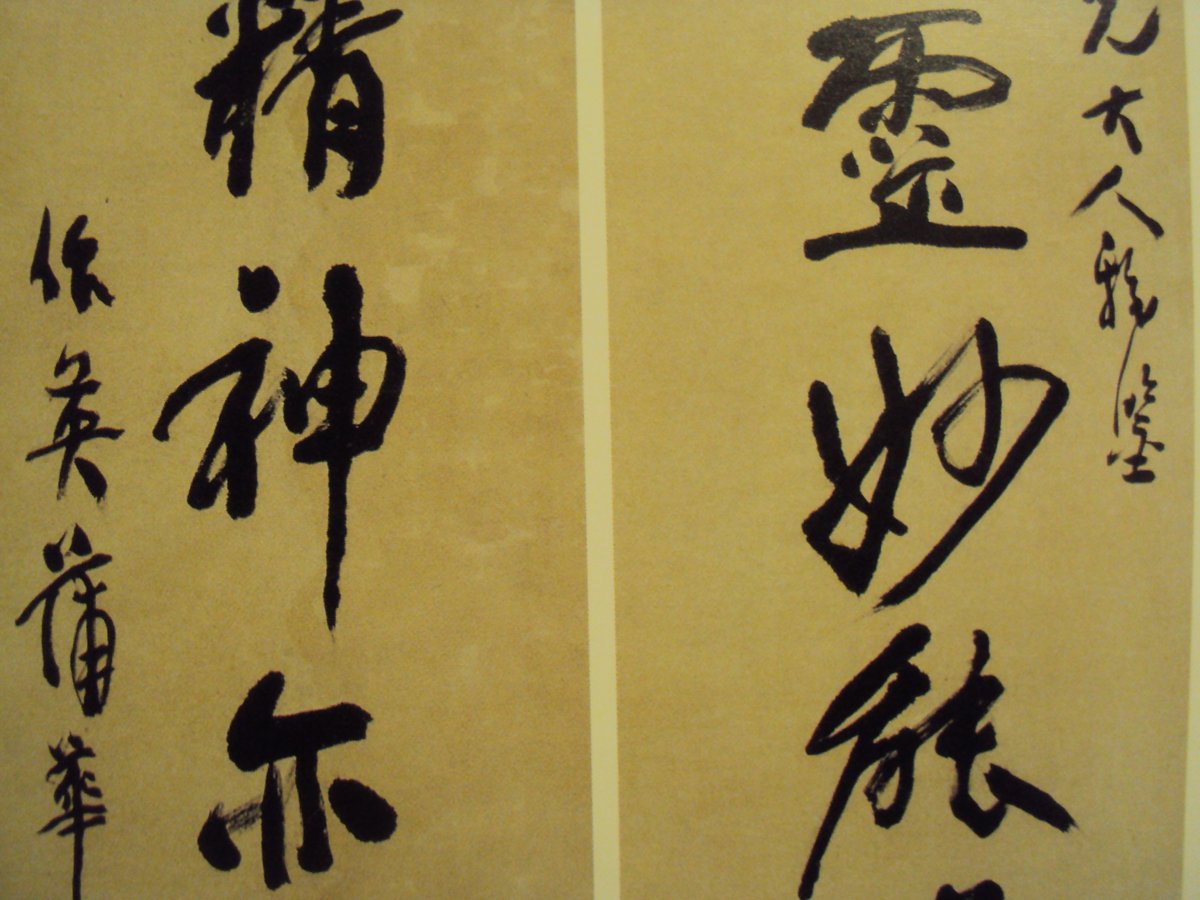 兄大人雅鑒
靈妙能
精神亦
作英蒲華